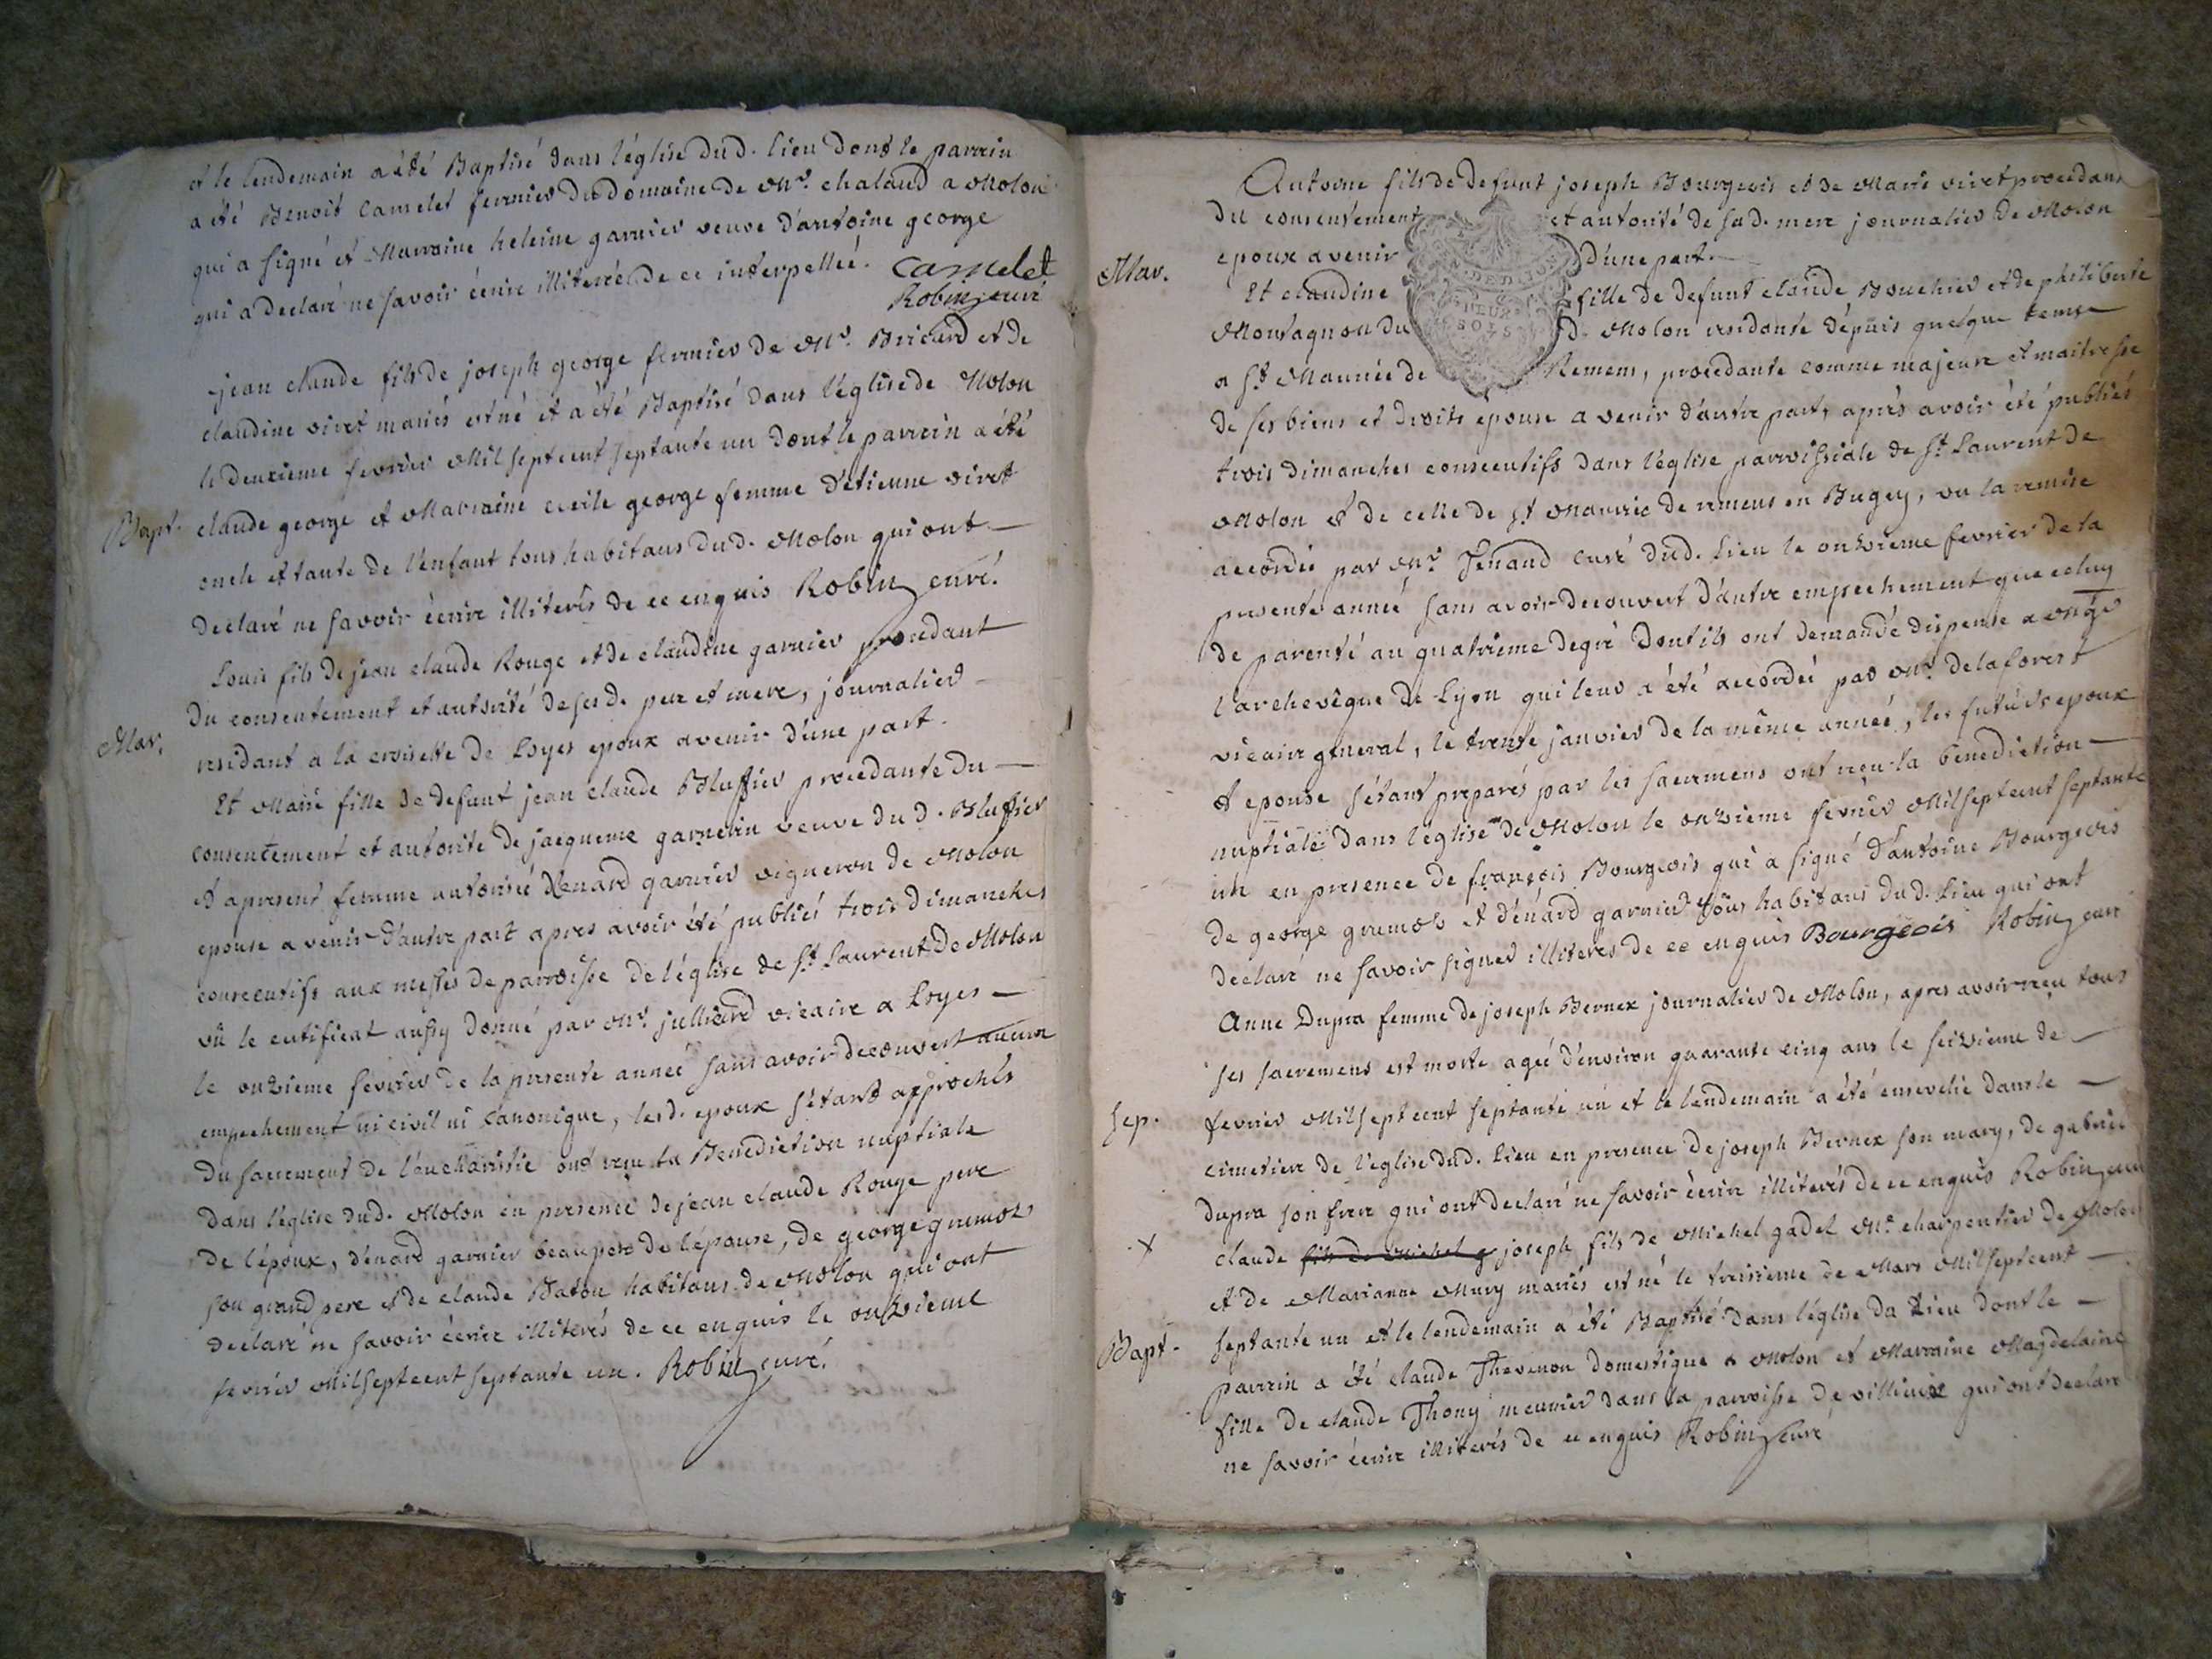 et le lendemain a été Baptisé dans l'église dud. lieu dont le parrein
a été Benoit Camelet fermier du domaine de Mr. chaland a Molon
qui a signé et Marraine heleine garnier veuve d'antoine george
qui a declaré ne savoir écrire illiterée de ce interpellée. Camelet
Robin curé
jean claude fils de joseph george fermier de Mr. Bricard et de
claudine viret mariés est né et a été Baptisé dans l'église de Molon
le deuxieme fevrier Mil sept cent septante un dont le parrein a été
Bapt. claude george et Marraine cecile george femme d'etienne viret
oncle et tante de l'enfant tous habitans dud. Molon qui ont
declaré ne savoir écrire illiterés de ce enquis Robin curé.
Louis fils de jean claude Rouge et de claudine garnier procedant
du consentement et autorité de ses d. pere et mere, journalier
Mar. residant a la croisette de Loyes epoux avenir d'une part.
Et Marie fille de defunt jean claude Bluffier procedante du
consentement et autorité de jacqueme garnerin veuve du d. Bluffier
et apresent femme autorisée d'enard garnier vigneron de Molon
epouse a venir d'autre part apres avoir été publiés trois dimanches
consecutifs aux messes de parroisse de l'église de St. Laurent de Molon
vû le certificat aussy donné par Mr. julliard vicaire a Loyes
le onzieme fevrier de la presente année sans avoir decouvert aucun
empechement ni civil ni canonique, les d. epoux s'étant approchés
du sacrement de l'eucharistie ont reçu la Benediction nuptiale
dans l'église dud. Molon en presence de jean claude Rouge pere
de l'époux, d'enard garnier beaupere de l'épouse, de george gremos
son grand pere et de claude Baton habitans de Molon qui ont
declaré ne savoir écrire illiterés de ce enquis le onzieme
fevrier Mil sept cent septante un. Robin curé.
Antoine fils de defunt joseph Bourgeois et de Marie viret procedant
du consentement et autorité de sa d. mere journalier de Molon
Mar. epoux avenir d'une part.
Et claudine fille de defunt claude Bouchier et de philiberte
Montagnon du d. Molon residante depuis quelque temse
a St. Maurice de Remens, procedante comme majeure et maitresse
de ses biens et droits epouse a venir d'autre part, après avoir été publiés
trois dimanches consecutifs dans l'église parroissiale de St. Laurent de
Molon et de celle de St Maurice de remens en Bugey, vu la remise
accordée par Mr. Tenand curé dud. lieu le onzieme fevrier de la
presente année sans avoir decouvert d'autre empechement que celuy
de parenté au quatrieme degré dont ils ont demandé dispense a Mgr
l'archevêque de Lyon qui leur a été accordée par Mr. delaforest
vicaire general, le trente janvier de la même année, les futurs epoux
et epouse s'étant preparés par les sacremens ont reçu la benediction
nuptiale dans l'église de Molon le onzieme fevrier Mil sept cent septante
un en presence de françois Bourgeois qui a signé d'antoine Bourgeois
de george gremos et d'énard garnier tous habitans dud. lieu qui ont
declaré ne savoir signer illiteres de ce enquis Bourgeois Robin curé
Anne Dupra femme de joseph Bernex journalier de Molon, apres avoir reçu tous
ses sacremens est morte agée d'environ quarante cinq ans le seizieme de
Sep. fevrier Mil sept cent septante un et le lendemain a été ensevelie dans le
cimetiere de l'eglise dud. lieu en presence de joseph Bernex son mary, de gabriel
dupra son frere qui ont declaré ne savoir écrire illiterés de ce enquis Robin curé
x claude fils de Michel g joseph fils de Michel gadet Me. charpentier de Molon
et de Marianne Mury mariés est né le treizieme de Mars Mil sept cent
Bapt. septante un et le lendemain a été Baptisé dans l'église du Lieu dont le
parrein a été claude Thevenon domestique a Molon et Marraine Magdelaine
fille de claude Thony meunier dans la parroisse de villieux qui ont declaré
ne savoir écrire illiterés de ce enquis Robin curé